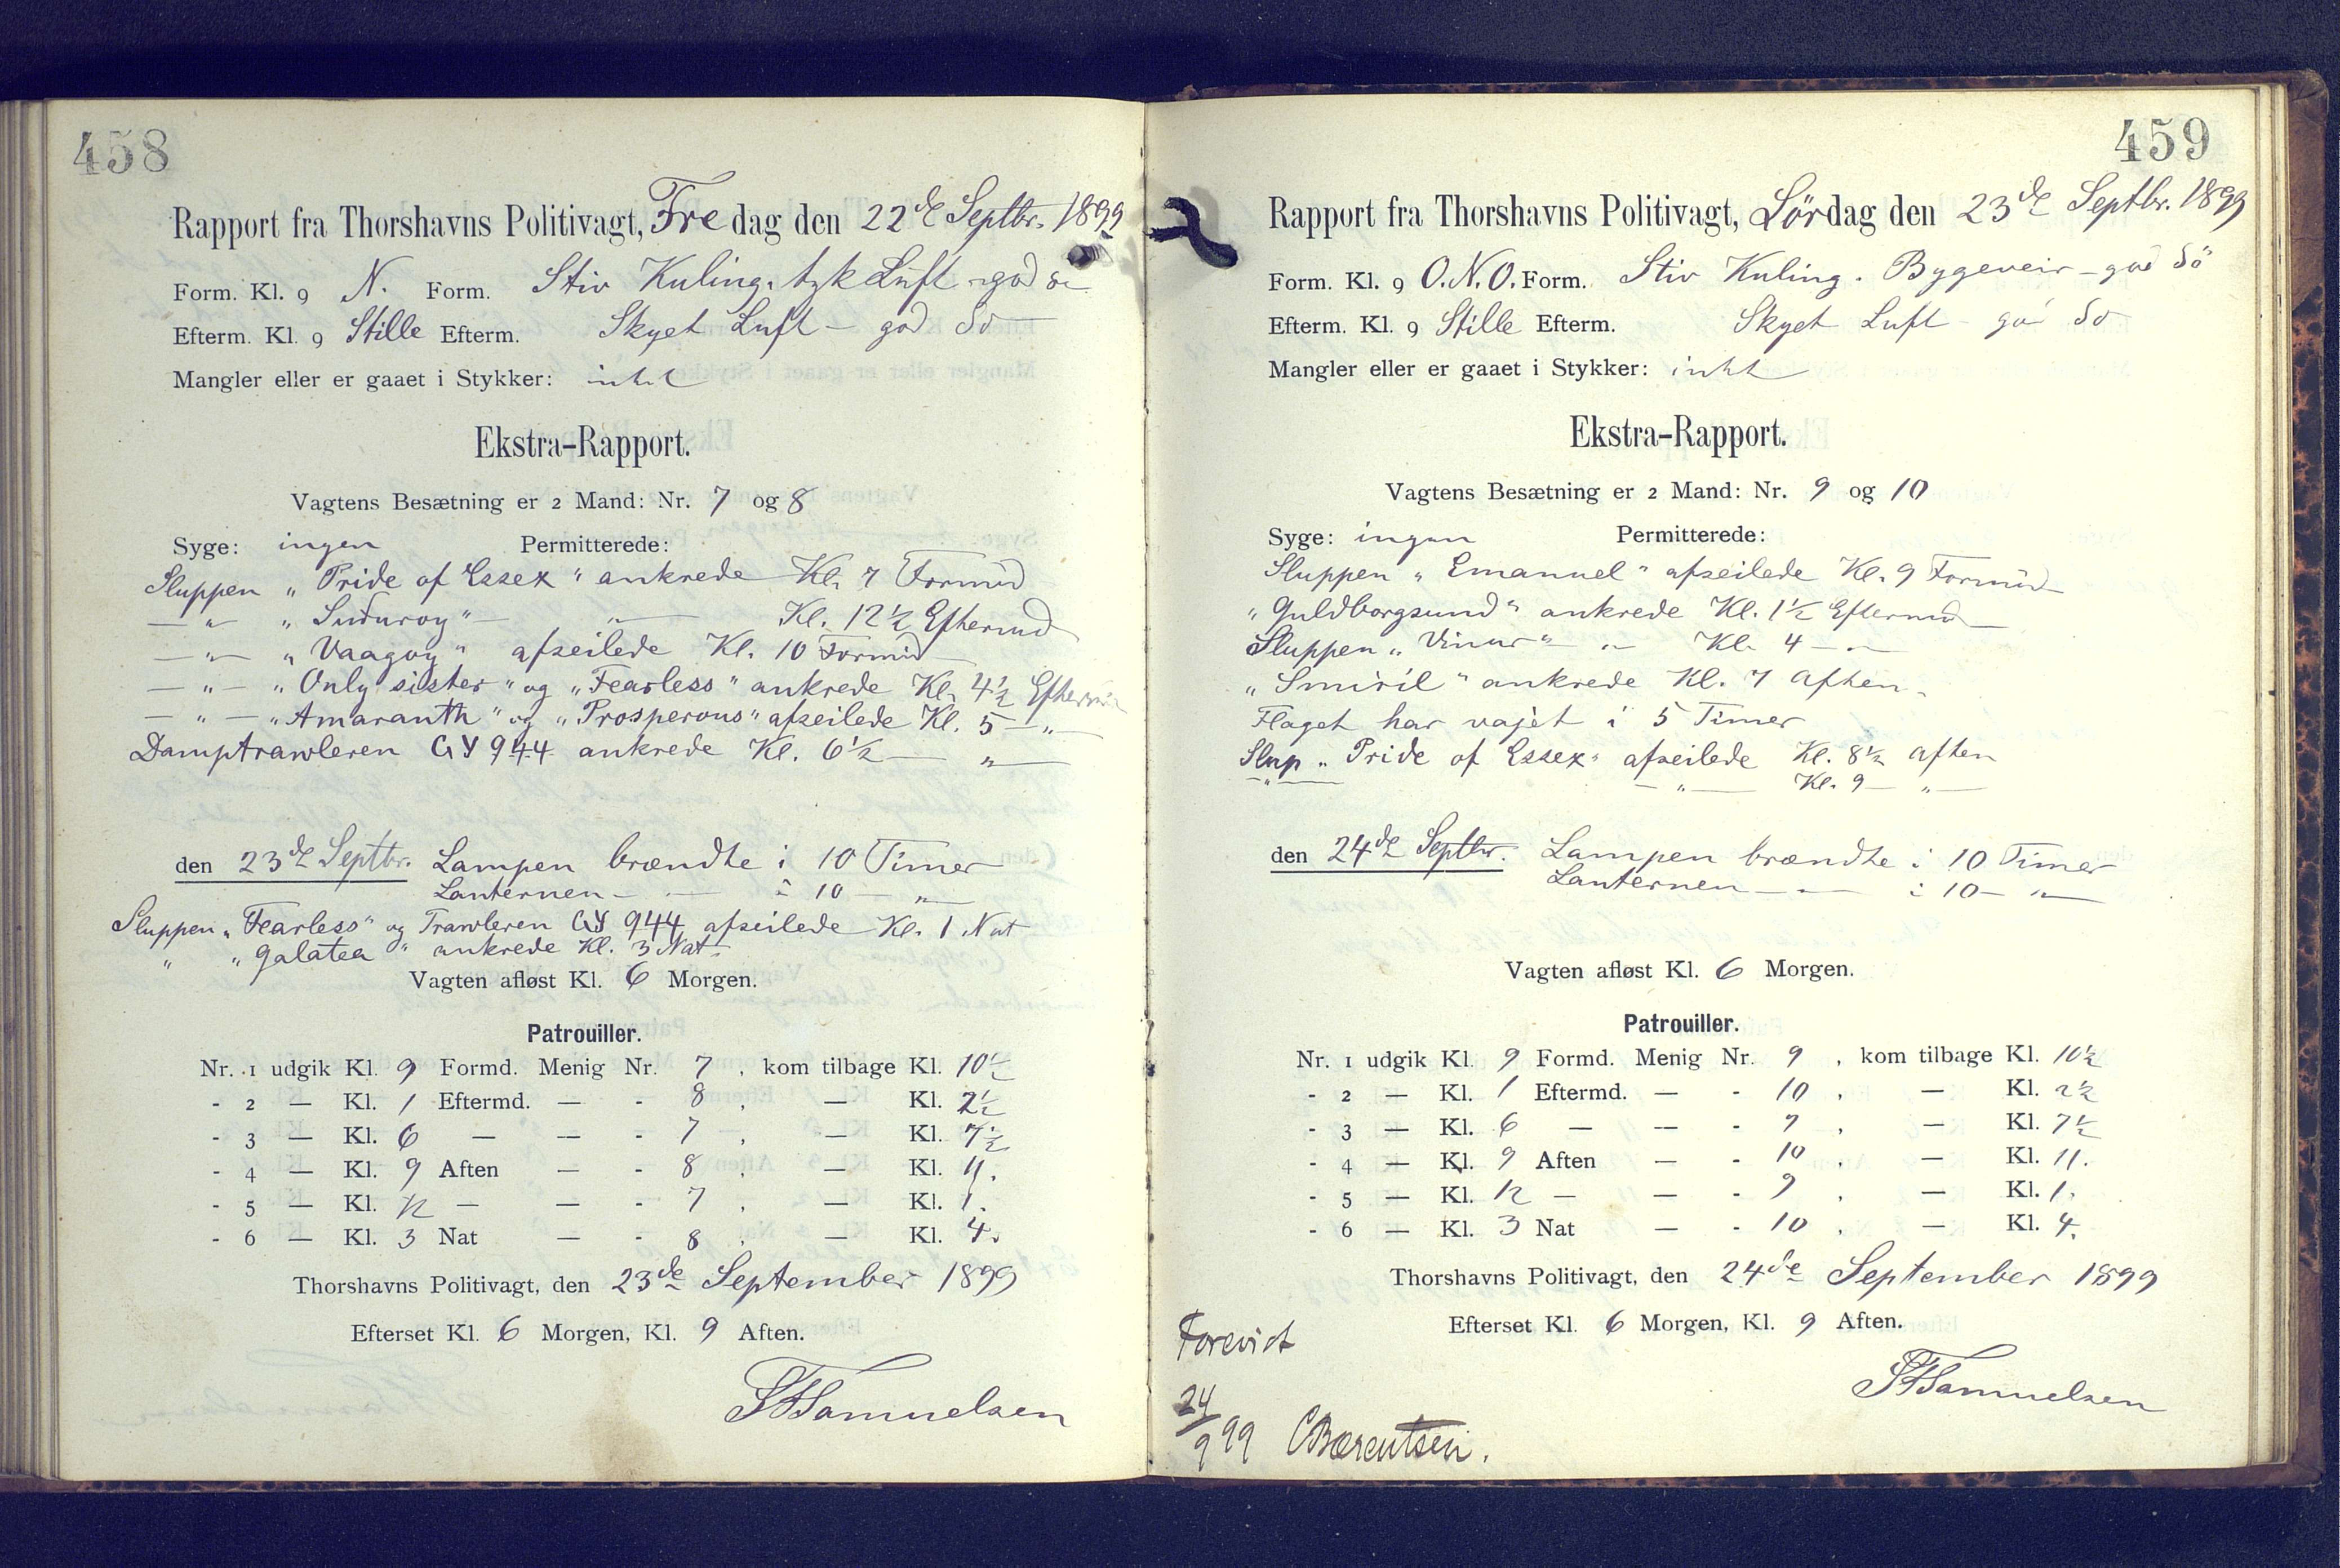 458
Rapport fra Thorshavns Politivagt, Fredag den 22de Septbr. 1899
Form. Kl. 9 N. Form. Stiv Kuling. tyk Luft - god
Efterm. Kl. 9 Stille Efterm. Skyet Luft - god Sö
Mangler eller er gaaet i Stykker: intet
Ekstra-Rapport.
Vagtens Besætning er 2 Mand: Nr. 7 og 8
Syge: ingen Permitterede:
Sluppen „Pride of Essex“ ankrede Kl. 7 Formid
— „ — „Suduroy“ — „ — Kl. 12½ Eftermd
— „ — „Vaagoy“ afseilede Kl. 10 Formid
— „ — „Only sister“ og „Fearless“ ankrede Kl. 4½ Eftermid
— „ — „Amaranth“ og „Prosperous“ afseilede Kl. 5 — „ —
Damptrawleren GY 944 ankrede Kl. 6½ — „ —
den 23de Septbr. Lampen brændte i 10 Timer
Lanternen — „ — i 10 — „ —
Sluppen „Fearless“ og Trawleren GY 944 afseilede Kl. 1 Nat
„ „Galatea“ ankrede Kl. 3 Nat
Vagten afløst Kl. 6 Morgen.
Patrouiller.
Nr. 1 udgik Kl. 9 Formd. Menig Nr. 7, kom tilbage Kl. 10½
- 2 — Kl. 1 Eftermd. — - 8, — Kl. 2½
- 3 — Kl. 6 — — - 7, — Kl. 7½
- 4 — Kl. 9 Aften — - 8, — Kl. 11.
- 5 — Kl. 12 — — - 7, — Kl. 1.
- 6 — Kl. 3 Nat — - 8, — Kl. 4.
Thorshavns Politivagt, den 23de September 1899
Efterset Kl. 6 Morgen, Kl. 9 Aften.
Samuelsen
459
Rapport fra Thorshavns Politivagt, Lördag den 23de Septbr. 1899
Form. Kl. 9 O.N.O. Form. Stiv Kuling. Bygeveir - god Sö
Efterm. Kl. 9 Stille Efterm. Skyet Luft - go Sö
Mangler eller er gaaet i Stykker: intet
Ekstra-Rapport.
Vagtens Besætning er 2 Mand: Nr. 9 og 10
Syge: ingen Permitterede:
Sluppen „Emanuel“ afseilede Kl. 9 Formid
„Guldborgsund“ ankrede Kl. 1½ Eftermd
Sluppen „Vinur“ — „ — Kl. 4 — „ —
„Smiril“ ankrede Kl. 7 Aften.
Flaget har vajet i 5 Timer
Slup „Pride of Essex“ afseilede Kl. 8½ Aften
— „ — — „ — Kl. 9 — „ —
den 24de Septbr. Lampen brændte i 10 Timer
Lanternen — „ — i 10 — „ —
Vagten afløst Kl. 6 Morgen.
Patrouiller.
Nr. 1 udgik Kl. 9 Formd. Menig Nr. 9, kom tilbage Kl. 10½
- 2 — Kl. 1 Eftermd. — - 10, — Kl. 2½
- 3 — Kl. 6 — — - 9, — Kl. 7½
- 4 — Kl. 9 Aften — - 10, — Kl. 11.
- 5 — Kl. 12 — — - 9, — Kl. 1.
- 6 — Kl. 3 Nat — - 10, — Kl. 4.
Thorshavns Politivagt, den 24de September 1899
Efterset Kl. 6 Morgen, Kl. 9 Aften.
Samuelsen
Forevist
24/9 99 CBærentsen.